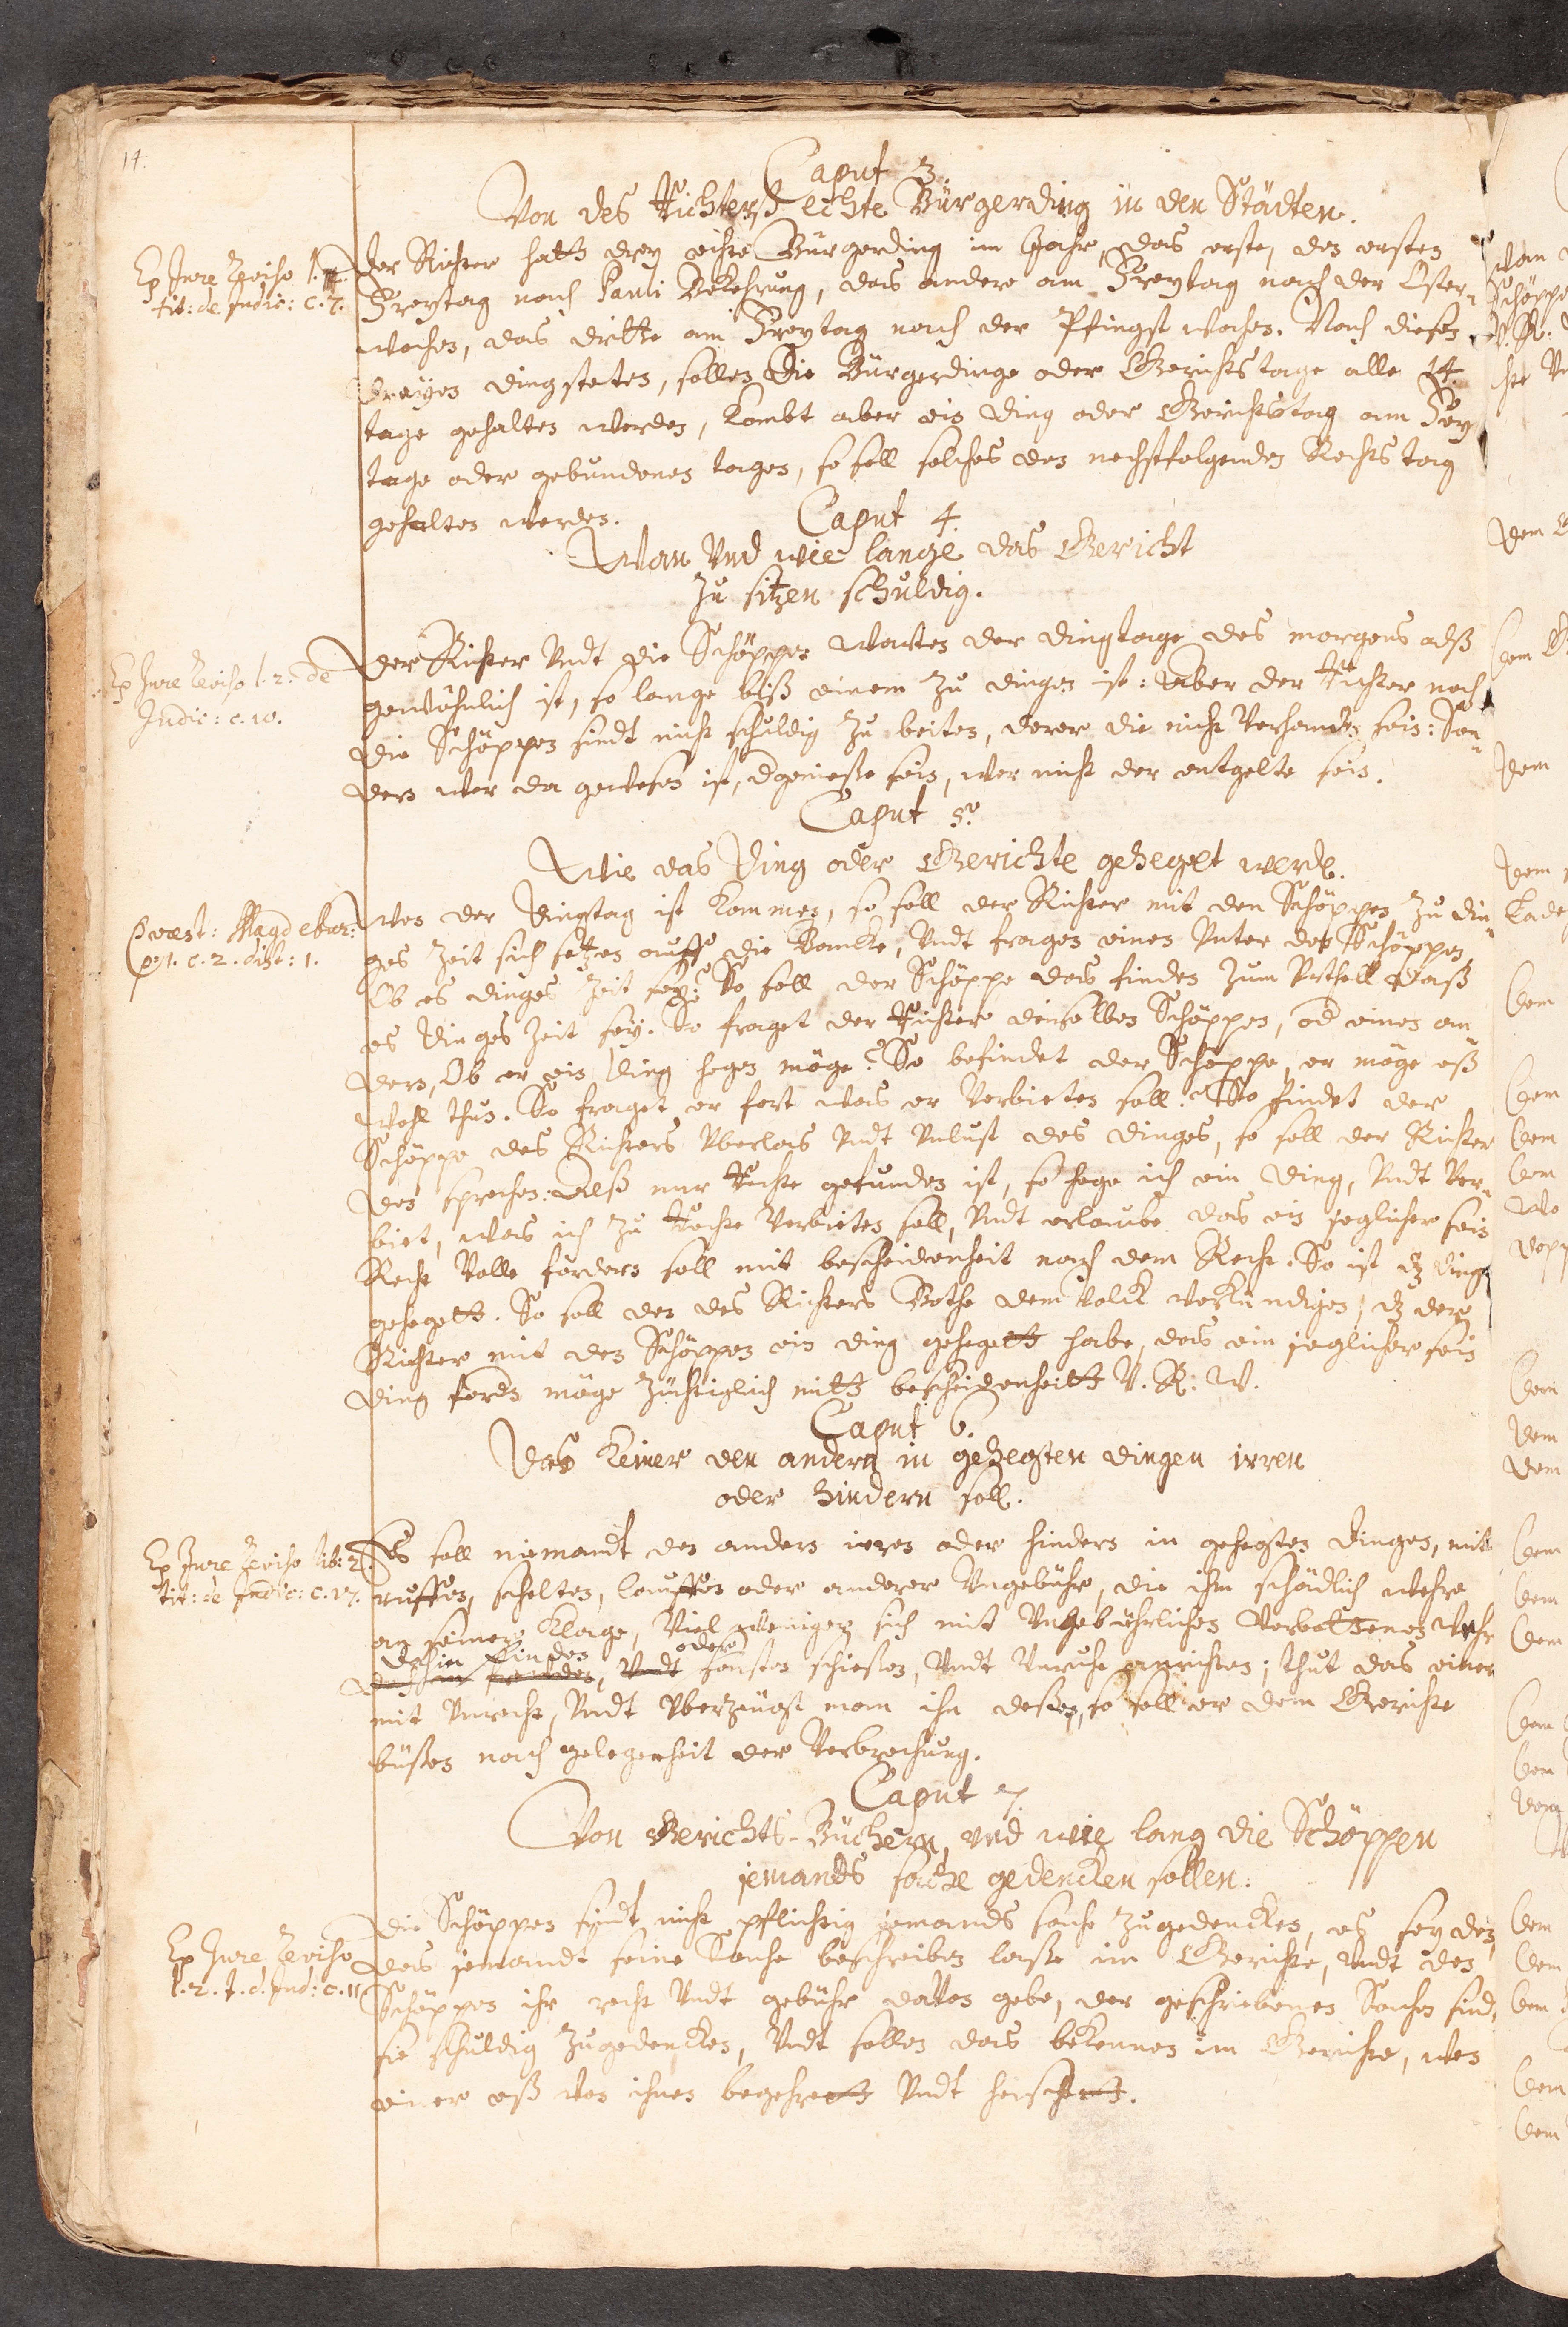 14.
Caput 3.
Von des Richters echte Bürgerding in den Städten.
Ex Jure Zeviho l.
tit: de Judic: c. 7.
Der Richter hatt drey echte Bürgerding im Jahr, das erste, den ersten
Freytag nach Pauli Bekehrung, das andere am Freytag nach der Oster-
wochen, das dritte am Freytag nach der Pfingst wochen. Nach diesen
dreyen dingsteten, sollen die Bürgerdinge oder Gerichtstage alle 14.
tage gehalten werden, kombt aber ein Ding oder Gerichtstag am Frey
tage oder gebundenen tagen, so soll solches den nechstfolgenden Rechtstag
gehalten werden.
Caput 4.
Wan vnd wie lange das Gericht
zu sitzen schuldig.
Ex Jure Zeviho l. 2. de
Judic: c. 10.
Der Richter vndt die Schöppen warten der dingtage des morgens alß
gewöhnlich ist, so lange biß einem zu dingen ist: Aber der Richter noch
die Schöppen sindt nicht schuldig zu beiten, derer die nicht verhanden sein: Son-
dern wer da gewesen ist, d genieße sein, wer nicht der entgelte sein.
Caput 5.
Wie das Ding oder Gerichte geheget werde.
Præst: Magdebur:
p: 1. c. 2. dist: 1.
Wen der Dingtag ist kommen, so soll der Richter mit den Schöppen zu din-
ges Zeit sich setzen auff die Bancke, vndt fragen einen vnter den Schöppen,
Ob es dinges Zeit sey? So soll der Schöppe das finden zum vrtheil daß
es dinges Zeit sey. So fraget der Richter denselben Schöppen, od einen an
dern, Ob er ein Ding hegen möge? So befindet der Schöppe, er möge eß
wohl thun. So fraget er fort was er verbieten soll? So findet der
Schöppe des Richters vberlas vndt vnlust des dinges, so soll der Richter
den sprechen: Alß mir Recht gefunden ist, so hege ich ein Ding, vndt ver-
biet, was ich zu Rechte verbieten soll, vndt erlaube das ein jeglicher sein
Recht volle fordern soll mit bescheidenheit nach dem Recht. So ist dz ding
gehegett. So soll den des Richters Bothe dem volck verkündigen, dz der
Richter mit den Schöppen ein ding gehegett habe, das ein jeglicher sein
ding fordn möge züchtiglich mitt bescheidenheitt V. R. W.
Caput 6.
Das keiner den andern in gehegten dingen irren
oder hindern soll.
Ex Jure Zeviho lib: 2.
tit: de Judic: c. 17.
Es soll niemandt den andern irren oder hindern in gehegten Dingen, mit
ruffen, schelten, lauffen oder anderer vngebühr, die ihm schädlich wehre
an seiner Klage, viel weniger sich mit vngebührlichen verbottenen wehr
dahin finden oder
sonsten schießen, vndt vnruhe anrichten; thut das einer
mit vnrecht, vndt vberzeugt man ihn deßen, so soll er dem Gerichte
büßen nach gelegenheit der verbrechung.
Caput 7.
Von Gerichts-Büchern, vnd wie lang die Schöppen
jemands sache gedencken sollen.
Ex Jure Zeviho
l. 2. t. d. Jud: c. 11
Die Schöppen sindt nicht pflichtig jemands sache zugedencken, es sey den,
das jemandt seine Sache beschreiben laße im Gerichte, vndt den
Schöppen ihr recht vndt gebühr davon gebe, der geschriebenen Sachen sind,
sie schuldig zugedencken, vndt sollen das bekennen im Gerichte, wen
einer eß von ihnen begehrett vndt heischett.